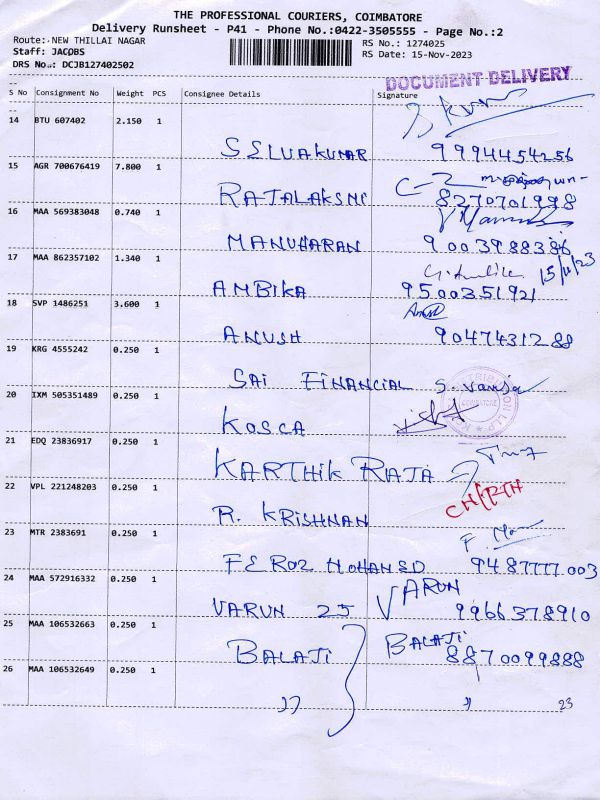 THE PROFESSIONAL COURIERS, COIMBATORE
Delivery Runsheet - P41 - Phone No.:0422-3505555 - Page No.:2
Route:-NEW THILLAI NAGAR RS No.: 1274025
Staff: JACOBS RS Date: 15-Nov-2023
DRS No.: DCJB127402502
DOCUMENT DELIVERY
S No Consignment No Weight PCS Consignee Details Signature
14 BTU 607402 2.150 1
SELVAKUMAR 9994454256
15 AGR 700676419 7.800 1
RAJALAKSMI 8270701998
16 MAA 569383048 0.740 1
MANOHARAN 9003988386
17 MAA 862357102 1.340 1 15/11/23
AMBIKA 9500351921
18 SVP 1486251 3.600 1
ANUSH 9047431288
19 KRG 4555242 0.250 1
SAI FINANCIAL
20 IXM 505351489 0.250 1
KOSCA
21 EDQ 23836917 0.250 1
KARTHIK RAJA
22 VPL 221248203 0.250 1
R. KRISHNAN
23 MTR 2383691 0.250 1
FEROZ MOHAMED 9487777003
24 MAA 572916332 0.250 1 VARUN
VARUN 25 9966378910
25 MAA 106532663 0.250 1 BALAJI
BALAJI 8870099888
26 MAA 106532649 0.250 1
23